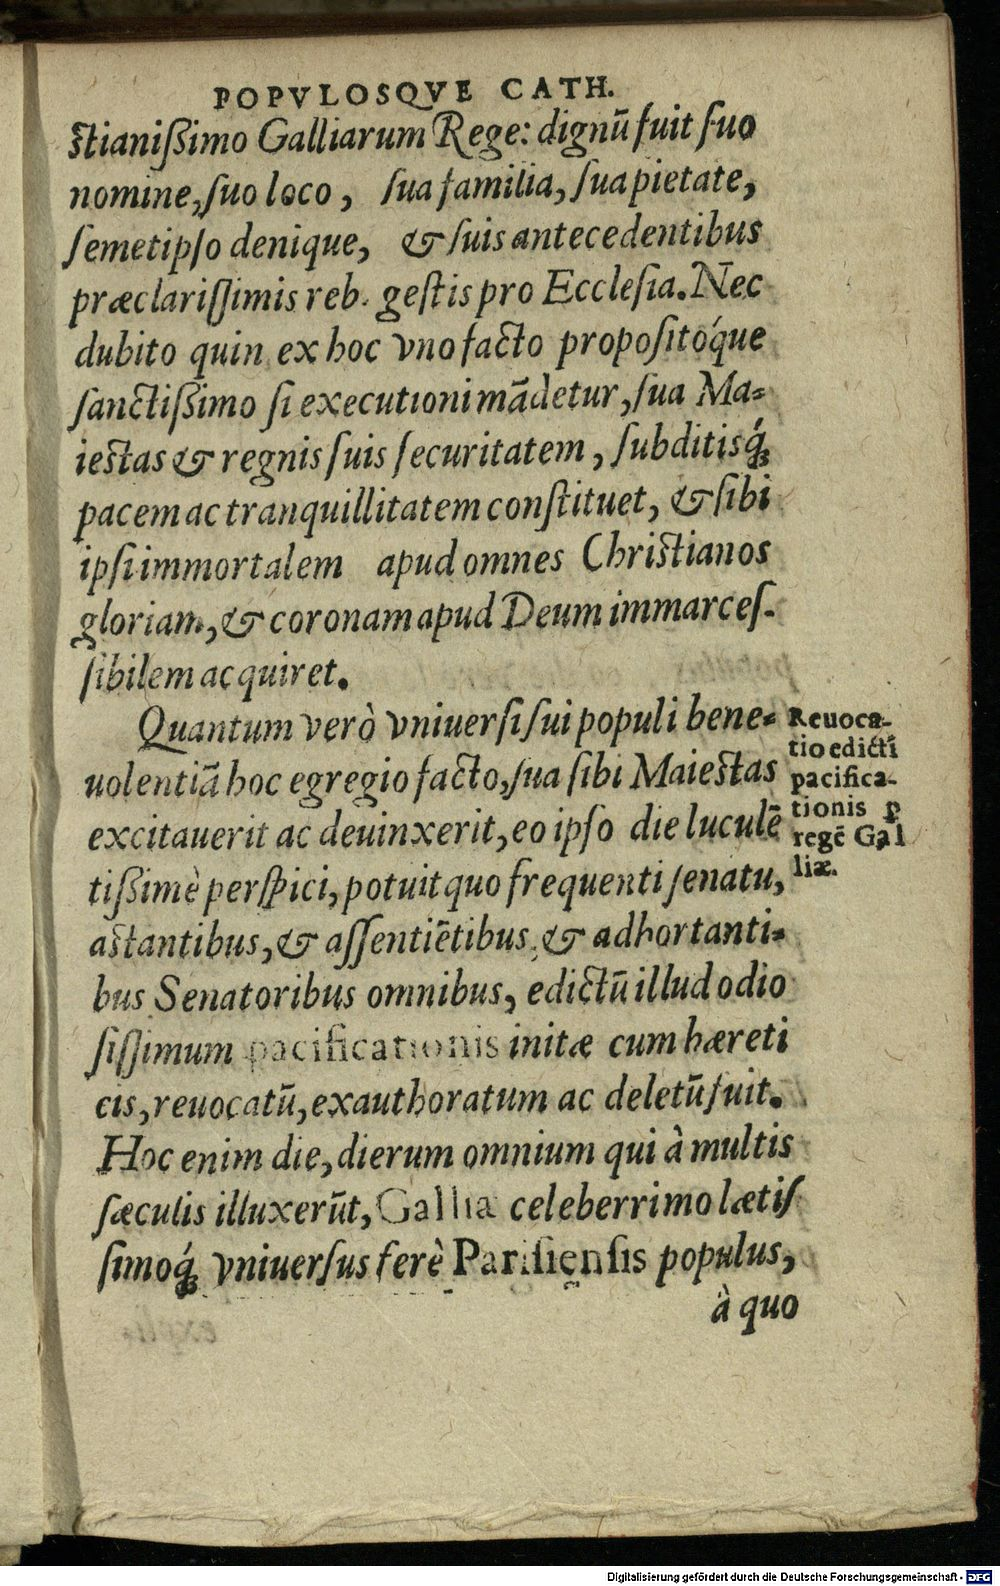 POPVLOSQVE CATH.
ſtianiſſimo Galliarum Rege: dignũ fuit ſuo
nomine, ſuo loco, ſua familia, ſua pietate,
ſemetipſo denique, & ſuis antecedentibus
præclariſſimis reb. geſtis pro Eccleſia. Nec
dubito quin ex hoc vno facto propoſitóque
ſanctiſſimo ſi executioni mãdetur, ſua Ma-
ieſtas & regnis ſuis ſecuritatem, ſubditisq́;
pacem ac tranquillitatem conſtituet, & ſibi
ipſi immortalem apud omnes Chriſtianos
gloriam, & coronam apud Deum immarceſ-
ſibilem acquiret.
Quantum verò vniuerſi ſui populi bene-
uolentiã hoc egregio facto, ſua ſibi Maieſtas
excitauerit ac deuinxerit, eo ipſo die luculẽ
tiſſimè perſpici, potuit quo frequenti ſenatu,
aſtantibus, & aſſentiẽtibus, & adhortanti-
bus Senatoribus omnibus, edictũ illud odio
ſiſſimum pacificationis initæ cum hæreti
cis, reuocatũ, exauthoratum ac deletũ fuit.
Hoc enim die, dierum omnium qui à multis
ſæculis illuxerũt, Gallia celeberrimo lætiſ
ſimoq́; vniuerſus ferè Pariſienſis populus,
à quo
Reuoca-
tio edicti
pacifica-
tionis ꝑ
regẽ Gal
liæ.
Digitalisierung gefördert durch die Deutsche Forschungsgemeinschaft - DFG